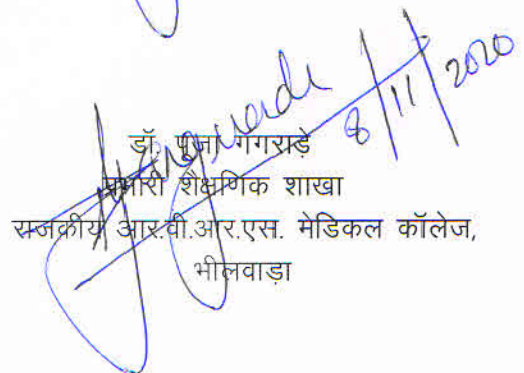 8/11/2020
डॉ. पूजा गंगराड़े
प्रभारी शैक्षणिक शाखा
राजकीय आर.वी.आर.एस. मेडिकल कॉलेज,
भीलवाड़ा